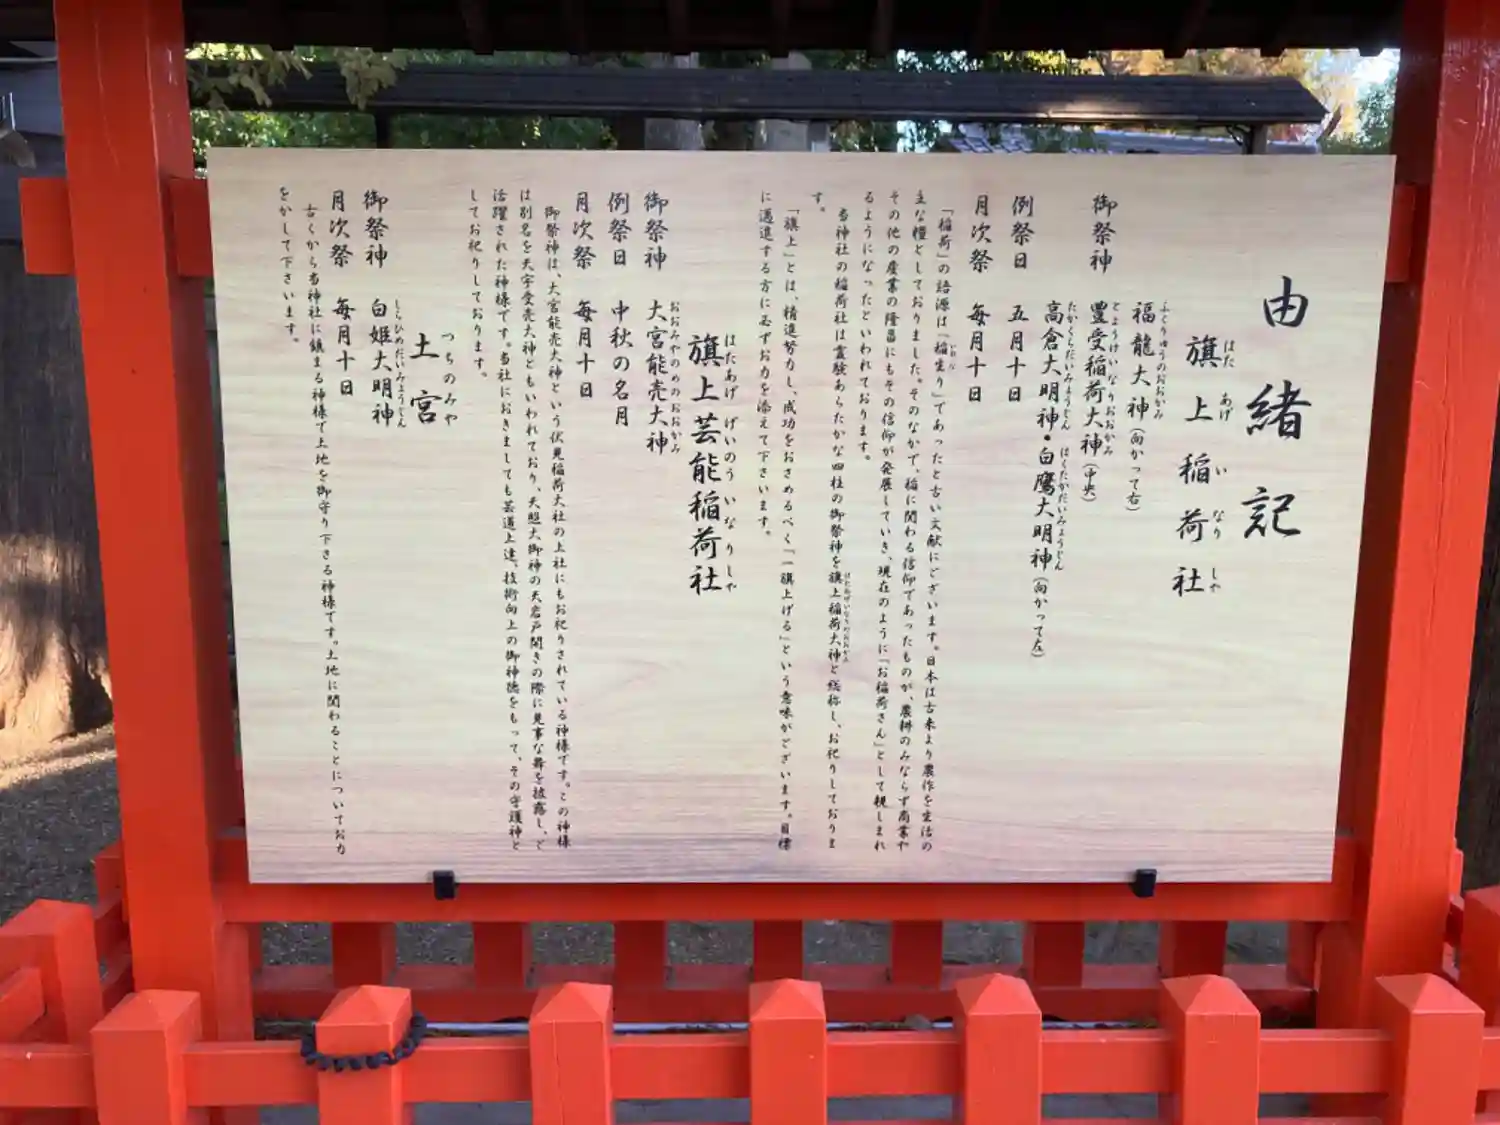 由緒記
旗上稲荷社
はたあげいなりしゃ
御祭神
福龍大神(向かって右)
ふくりゅうのおおかみ
豊受稲荷大神(中央)
とようけいなりおおかみ
高倉大明神・白鷹大明神(向かって左)
たかくらだいみょうじん はくたかだいみょうじん
例祭日 五月十日
月次祭 毎月十日
「稲荷」の語源は「稲生り」であったと古い文献にございます。日本は古来より農作を生活の
主な糧としておりました。そのなかで、稲に関わる信仰であったものが、農耕のみならず商業や
その他の産業の隆昌にもその信仰が発展していき、現在のように「お稲荷さん」として親しまれ
るようになったといわれております。
当神社の稲荷社は霊験あらたかな四柱の御祭神を旗上稲荷大神と総称し、お祀りしておりま
す。
「旗上」とは、精進努力し、成功をおさめるべく「一旗上げる」という意味がございます。目標
に邁進する方に必ずお力を添えて下さいます。
旗上芸能稲荷社
はたあげ げいのう いなりしゃ
御祭神 大宮能売大神
おおみやのめのおおかみ
例祭日 中秋の名月
月次祭 毎月十日
御祭神は、大宮能売大神という伏見稲荷大社の上社にもお祀りされている神様です。この神様
は別名を天宇受売大神ともいわれており、天照大御神の天岩戸開きの際に見事な舞を披露し、ご
活躍された神様です。当社におきましても芸道上達、技術向上の御神徳をもって、その守護神と
してお祀りしております。
土宮
つちのみや
御祭神 白姫大明神
しらひめだいみょうじん
月次祭 毎月十日
古くから当神社に鎮まる神様で土地を御守り下さる神様です。土地に関わることについてお力
をかして下さいます。